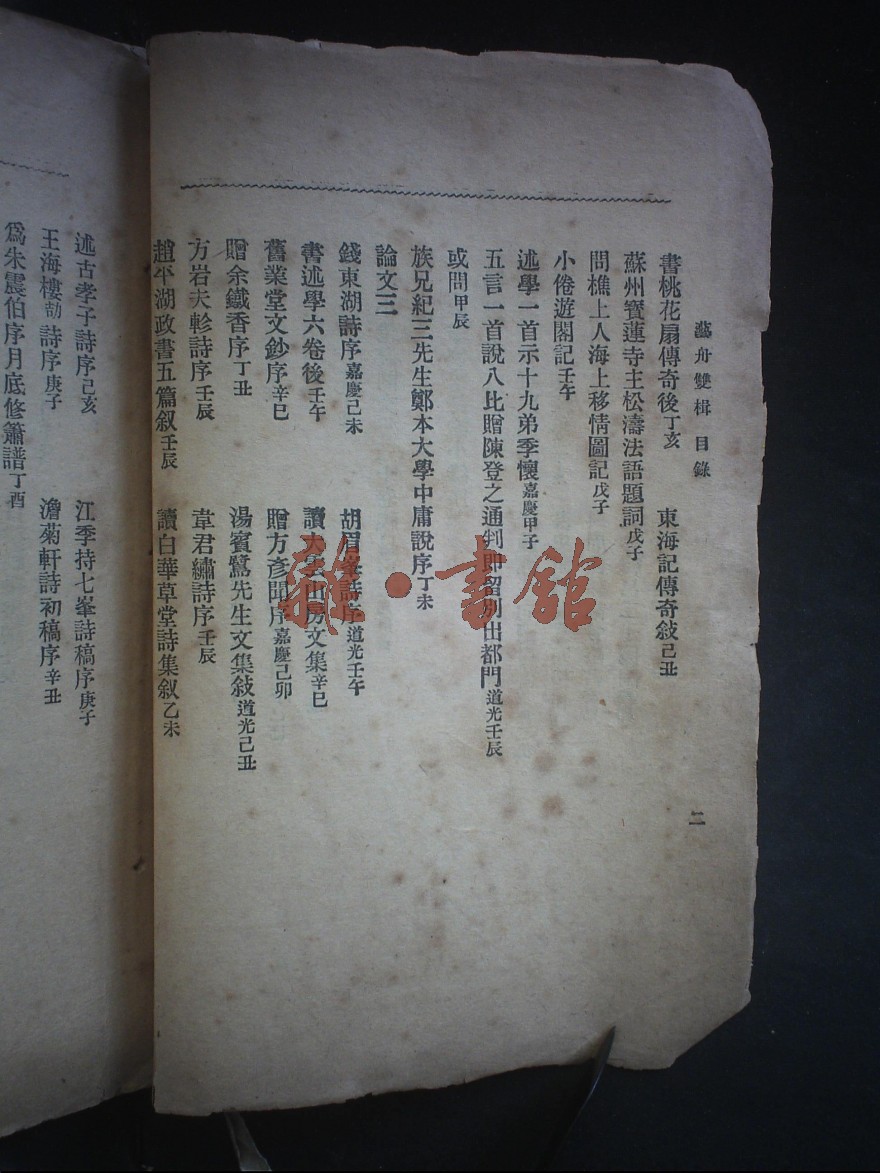 藝舟雙楫 目錄
二
書桃花扇傳奇後丁亥 東海記傳奇敍己丑
蘇州寶蓮寺主松濤法語題詞戊子
問樵上人海上移情圖記戊子
小倦遊閣記壬午
述學一首示十九弟季懷嘉慶甲子
五言一首說八比贈陳登之通判即留別出都門道光壬辰
或問甲辰
族兄紀三先生鄭本大學中庸說序丁未
論文三
錢東湖詩序嘉慶己未 胡眉峯詩序道光壬午
書述學六卷後壬午 讀大雲山房文集辛巳
舊業堂文鈔序辛巳 贈方彥聞序嘉慶己卯
贈余鐵香序丁丑 湯賓鷺先生文集敍道光己丑
方岩夫軫詩序壬辰 韋君繡詩序壬辰
趙平湖政書五篇叙壬辰 讀白華草堂詩集叙乙未
述古孝子詩序己亥 江季持七峯詩稿序庚子
王海樓劼詩序庚子 澹菊軒詩初稿序辛丑
爲朱震伯序月底修簫譜丁酉
雜·書館